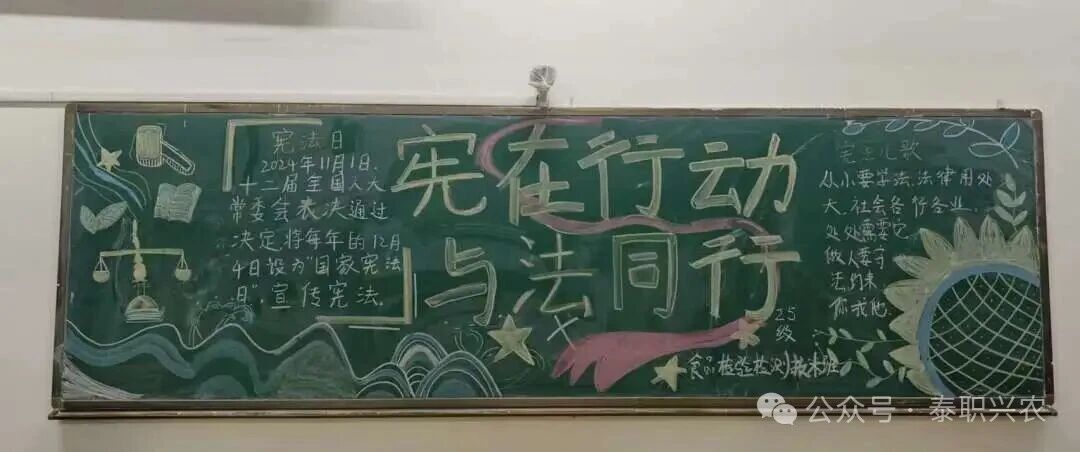 宪法日
2024年11月1日、
十二届全国人大
常委会表决通过
决定,将每年的12月
4日设为“国家宪法
日”,宣传宪法。
宪在行动
与法同行
25
级
食品检验检测技术班
宪法儿歌
从小要学法,法律用处
大。社会各行各业,
处处需要它
做人要守
法,约束
你我他.
公众号·泰职兴农